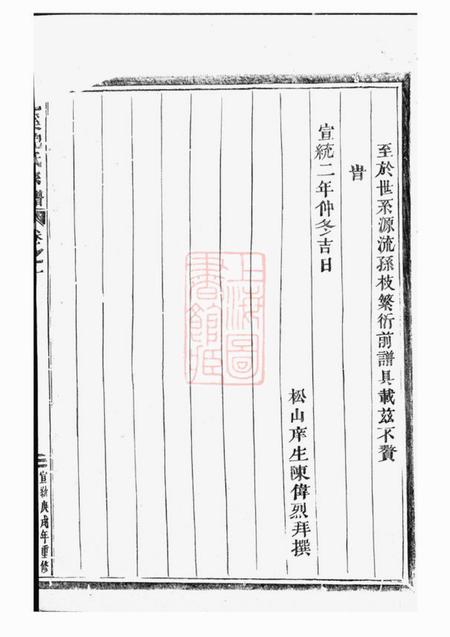 至於世系源流孫枝繁衍前譜具載茲不贅
旹
宣統二年仲冬吉日
松山庠生陳偉烈拜撰
氏宗譜
卷之一
宣統庚戌年重修
上海圖書館藏